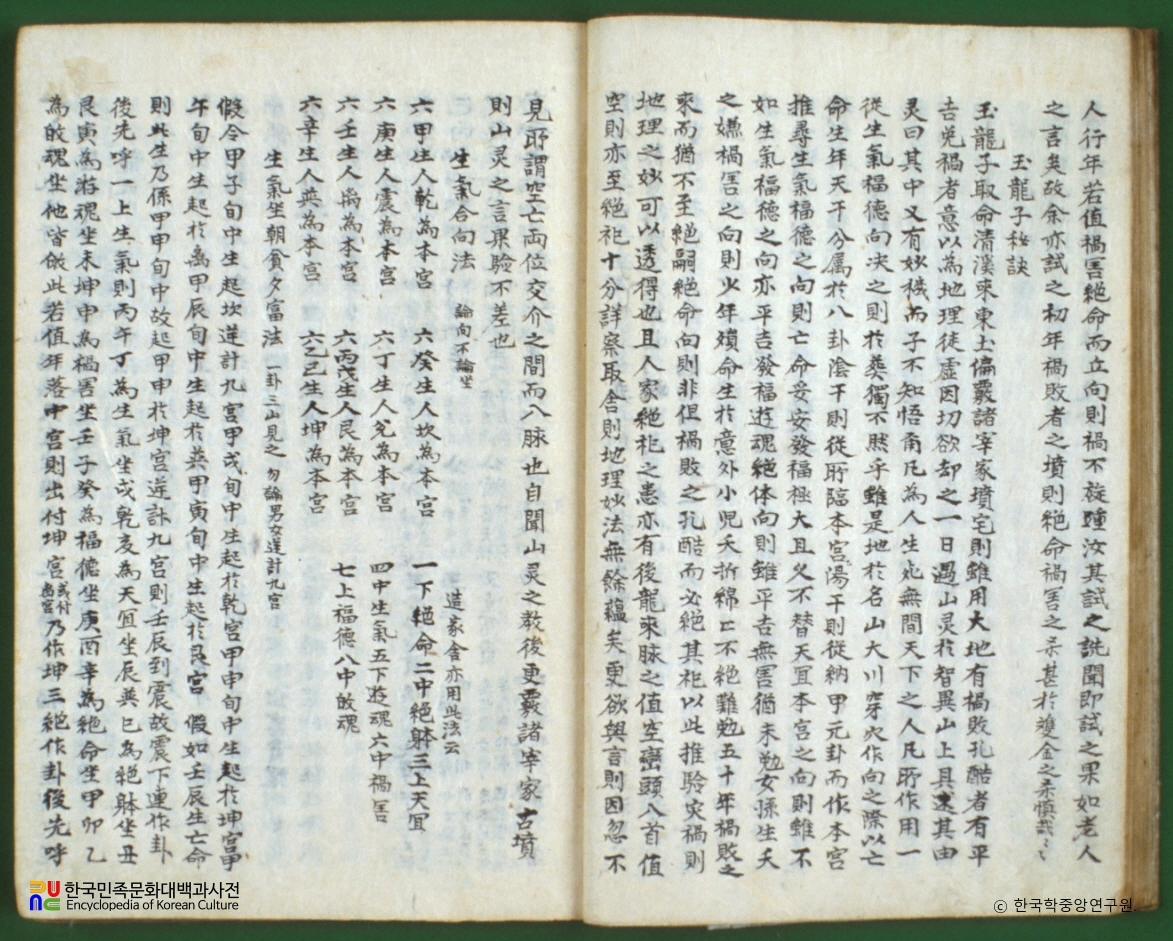 人行年若值禍害絶命而立向則禍不旋踵汝其試之詵聞即試之果如老人
之言矣故余亦試之初年禍敗者之墳則絶命禍害之杀甚於雙金之杀慎哉々々
玉龍子秘訣
玉龍子取命清溪來東土偏覈諸宰家墳宅則雖用大地有禍敗孔酷者有平
吉免禍者意以為地理徒虛因切欲却之一日遇山灵於智異山上具達其由
灵曰其中又有妙機而子不知悟甫凡為人生老無間天下之人凡所作用一
從生氣福德向决之則於葬獨不然乎雖是地於名山大川穿穴作向之際以亡
命生年天干分属於八卦陰干則從所臨本宮陽干則從納甲元卦而作本宮
推尋生氣福德之向則亡命妥安發福極大且久不替天宜本宮之向則雖不
如生氣福德之向亦平吉發福遊魂絶体向則雖平吉無害猶未勉女孫生夭
之嫌禍害之向則少年殞命生於意外小児夭折綿々不絶難勉五十年禍敗之
來而猶不至絶嗣絶命向則非但禍敗之孔酷而必絶其祀以此推驗灾禍則
地理之妙可以透得也且人家絶祀之患亦有後龍來脉之值空巒頭入首值
空則亦至絶祀十分詳察取舍則地理妙法無餘蘊矣更欲與言則因忽不
見所謂空亡両位交介之間而八脉也自聞山灵之教後更覈諸宰家古墳
則山灵之言果驗不差也
生氣合向法 論向不論坐 造家舍亦用此法云
六甲生人乾為本宮 六癸生人坎為本宮 一下絶命二中絶躰三上天宜
六庚生人震為本宮 六丁生人兌為本宮 四中生氣五下遊魂六中禍害
六壬生人离為本宮 六丙戊生人艮為本宮 七上福德八中敀魂
六辛生人巽為本宮 六乙己生人坤為本宮
生氣坐朝貧夕富法 一卦三山見之勿論男女逆計九宮
假令甲子旬中生起坎逆計九宮甲戌旬中生起於乾宮甲申旬中生起於坤宮甲
午旬中生起於离甲辰旬中生起於巽甲寅旬中生起於艮宮 假如壬辰生亡命
則此生乃係甲申旬中故起甲申於坤宮逆計九宮則壬辰到震故震下連作卦
後先呼一上生氣則丙午丁為生氣坐戌乾亥為天宜坐辰巽巳為絶躰坐丑
艮寅為遊魂坐未坤申為禍害坐壬子癸為福德坐庚酉辛為絶命坐甲卯乙
為敀魂坐他皆倣此若值年落中宮則出付坤宮或付离宮乃作坤三絶作卦後先呼
한국민족문화대백과사전
Encyclopedia of Korean Culture
© 한국학중앙연구원.